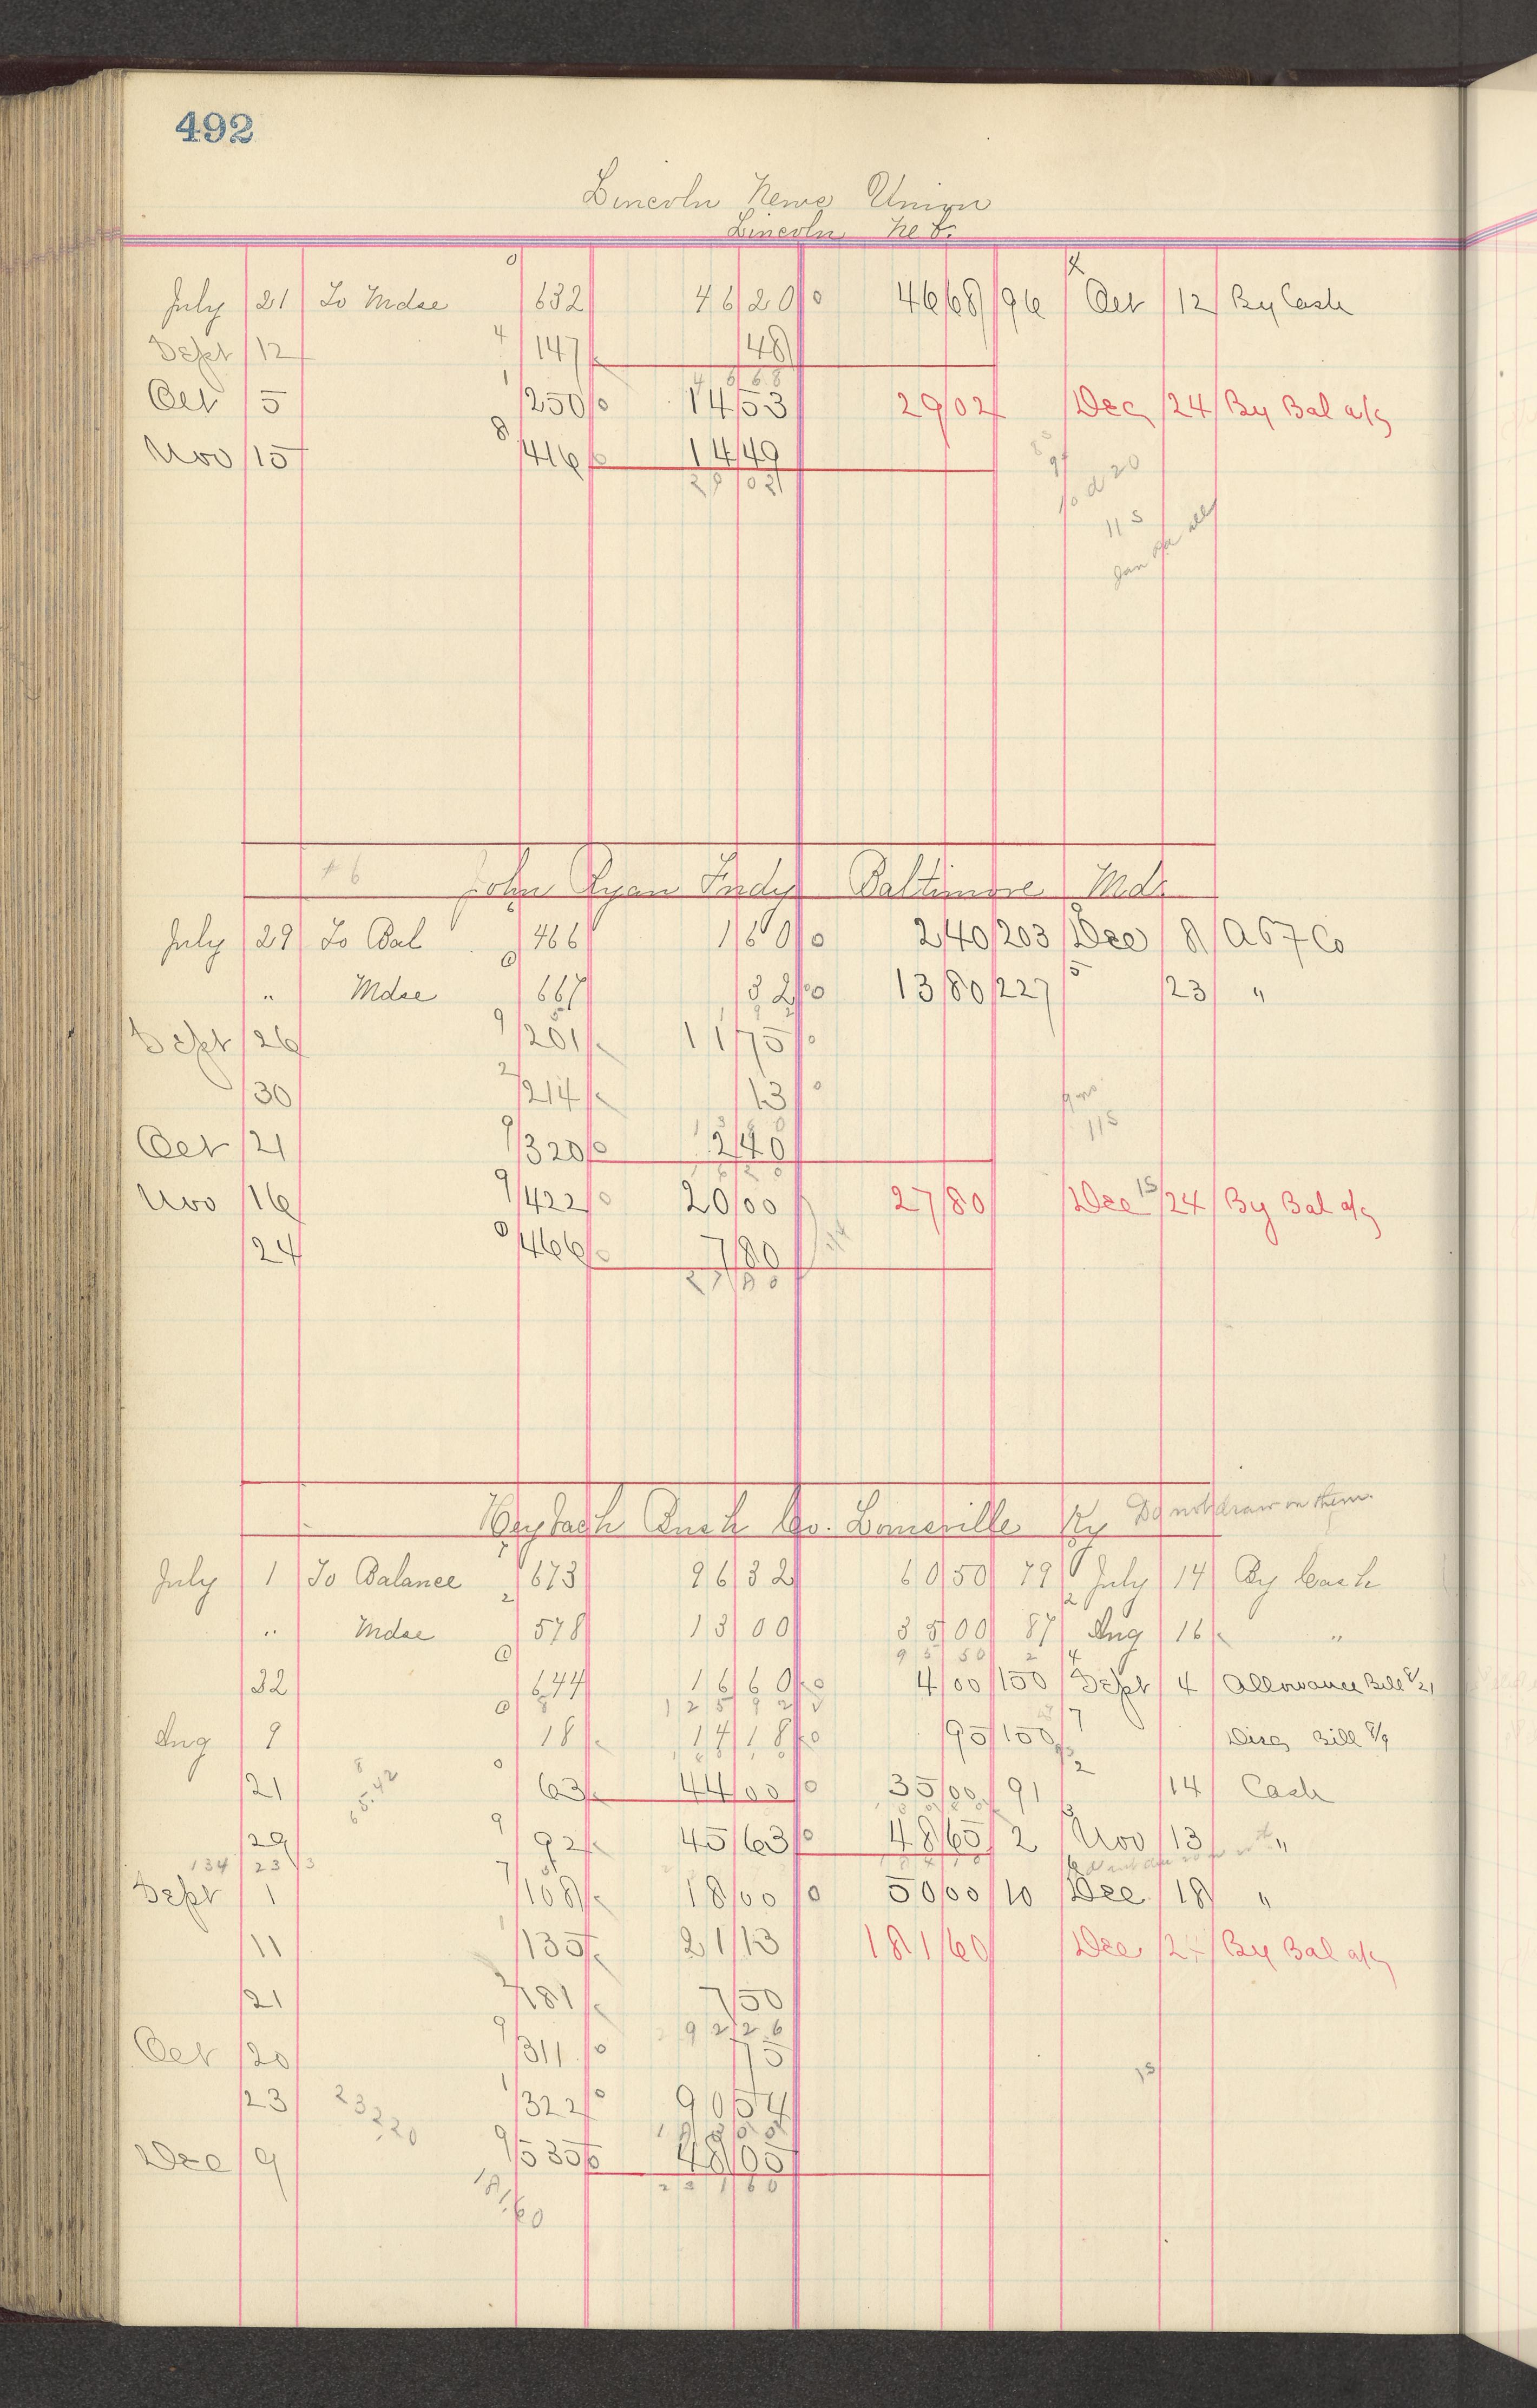 492
Lincoln News Union
Lincoln Neb.
July 21 To Mdse 632 46 20 46 68 96 Oct 12 By Cash
Sept 12 147 48
46 68
Oct 5 250 14 53 29 02 Dec 24 By Bal a/c
Nov 15 416 14 49
29 02
10 d 20
11 s
Jan
John Ryan Indy Baltimore Md
July 29 To Bal 466 1 60 2 40 203 Dec 8
" Mdse 667 32 13 80 227 23 "
Sept 26 201 11 75
30 214 13
Oct 21 320 2 40
Nov 16 422 20 00 27 80 Dec 24 By Bal a/c
24 466 7 80
27 80
Co. Louisville Ky Do not draw on them.
July 1 To Balance 673 96 32 60 50 79 July 14 By Cash
" Mdse 578 13 00 35 00 87 Aug 16 "
95 50
32 644 16 60 4 00 150 Sept 4 Allowance Bill 8/21
125 92
Aug 9 18 14 18 95 150 Disc Bill 8/9
21 63 44 00 35 00 91 14 Cash
65.42
29 92 45 63 48 65 2 Nov 13 "
134 23
Sept 1 108 18 00 50 00 10 Dec 18 "
11 135 21 13 181 60 Dec By Bal a/c
21 181 7 50
92 26
Oct 20 311 75
23 322 90 54
232 20
Dec 9 535 48 05
231 60
181.60